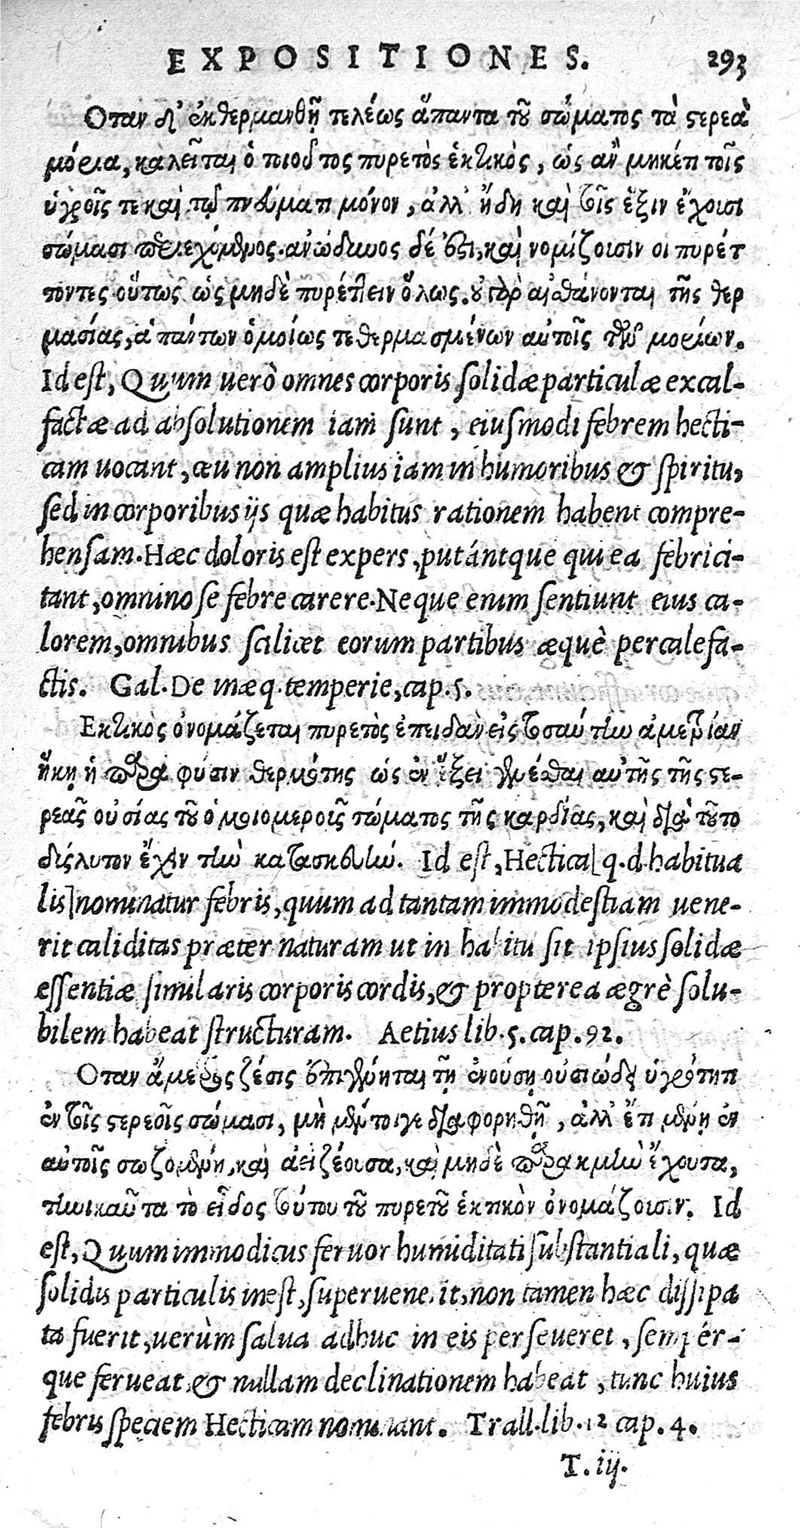 EXPOSITIONES. 293
Ὅταν δ' ἐκθερμανθῇ τελέως ἅπαντα τοῦ σώματος τὰ στερεὰ
μόρια, καλεῖται ὁ τοιοῦτος πυρετὸς ἑκτικὸς, ὡς ἂν μηκέτι τοῖς
ὑγροῖς τε καὶ τῷ πνεύματι μόνον, ἀλλ' ἤδη καὶ τοῖς ἕξιν ἔχουσι
σώμασι περιεχόμενος. ἀνώδυνος δέ ἐστι, καὶ νομίζουσιν οἱ πυρέτ
τοντες οὕτως ὡς μηδὲ πυρέττειν ὅλως. οὐ γὰρ αἰσθάνονται τῆς θερ
μασίας, ἁπάντων ὁμοίως τεθερμασμένων αὐτοῖς τῶν μορίων.
Id est, Quum uerò omnes corporis solidæ particulæ excal-
factæ ad absolutionem iam sunt, eiusmodi febrem hecti-
cam uocant, ceu non amplius iam in humoribus & spiritu,
sed in corporibus ijs quæ habitus rationem habent compre-
hensam. Hæc doloris est expers, putántque qui ea febrici-
tant, omnino se febre carere. Neque enim sentiunt eius ca-
lorem, omnibus scilicet eorum partibus æquè percalefa-
ctis. Gal. De inæq. temperie, cap. 5.
Ἑκτικὸς ὀνομάζεται πυρετὸς ἐπειδὰν εἰς τοσαύτην ἀμετρίαν
ἥκῃ ἡ παρὰ φύσιν θερμότης ὡς ἐν ἕξει γενέσθαι αὐτῆς τῆς στε-
ρεᾶς οὐσίας τοῦ ὁμοιομεροῦς σώματος τῆς καρδίας, καὶ διὰ τοῦτο
δύσλυτον ἔχειν τὴν κατασκευὴν. Id est, Hectica[q. d. habitua
lis]nominatur febris, quum ad tantam immodestiam uene-
rit caliditas præter naturam ut in habitu sit ipsius solidæ
essentiæ similaris corporis cordis, & propterea ægrè solu-
bilem habeat structuram. Aetius lib. 5. cap. 92.
Ὅταν ἄμετρος ζέσις ἐπιγένηται τῇ ἐνούσῃ οὐσιώδει ὑγρότητι
ἐν τοῖς στερεοῖς σώμασι, μὴ μέντοιγε διαφορηθῇ, ἀλλ' ἔτι μένῃ ἐν
αὐτοῖς σωζομένη, καὶ ἀεὶ ζέουσα, καὶ μηδὲ παρακμὴν ἔχουσα,
τηνικαῦτα τὸ εἶδος τούτου τοῦ πυρετοῦ ἑκτικὸν ὀνομάζουσιν. Id
est, Quum immodicus feruor humiditati substantiali, quæ
solidis particulis inest, superuenerit, non tamen hæc dissipa
ta fuerit, uerùm salua adhuc in eis perseueret, sempér-
que ferueat, & nullam declinationem habeat, tunc huius
febris speciem Hecticam nominant. Trall. lib. 12 cap. 4.
T. iij.